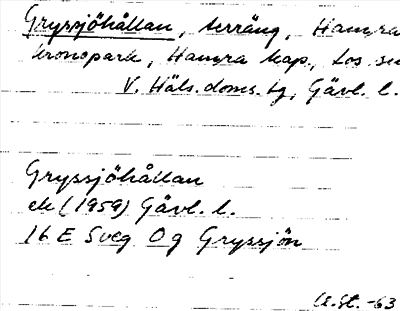 Gryssjöhåkan, terräng, Hamra
kronopark, Hamra kap., Los sn
V. Häls. doms. tg, Gävl. l.
Gryssjöhåkan
ek (1959) Gävl. l.
16 E Sveg 0 g Gryssjön
U.St. -63